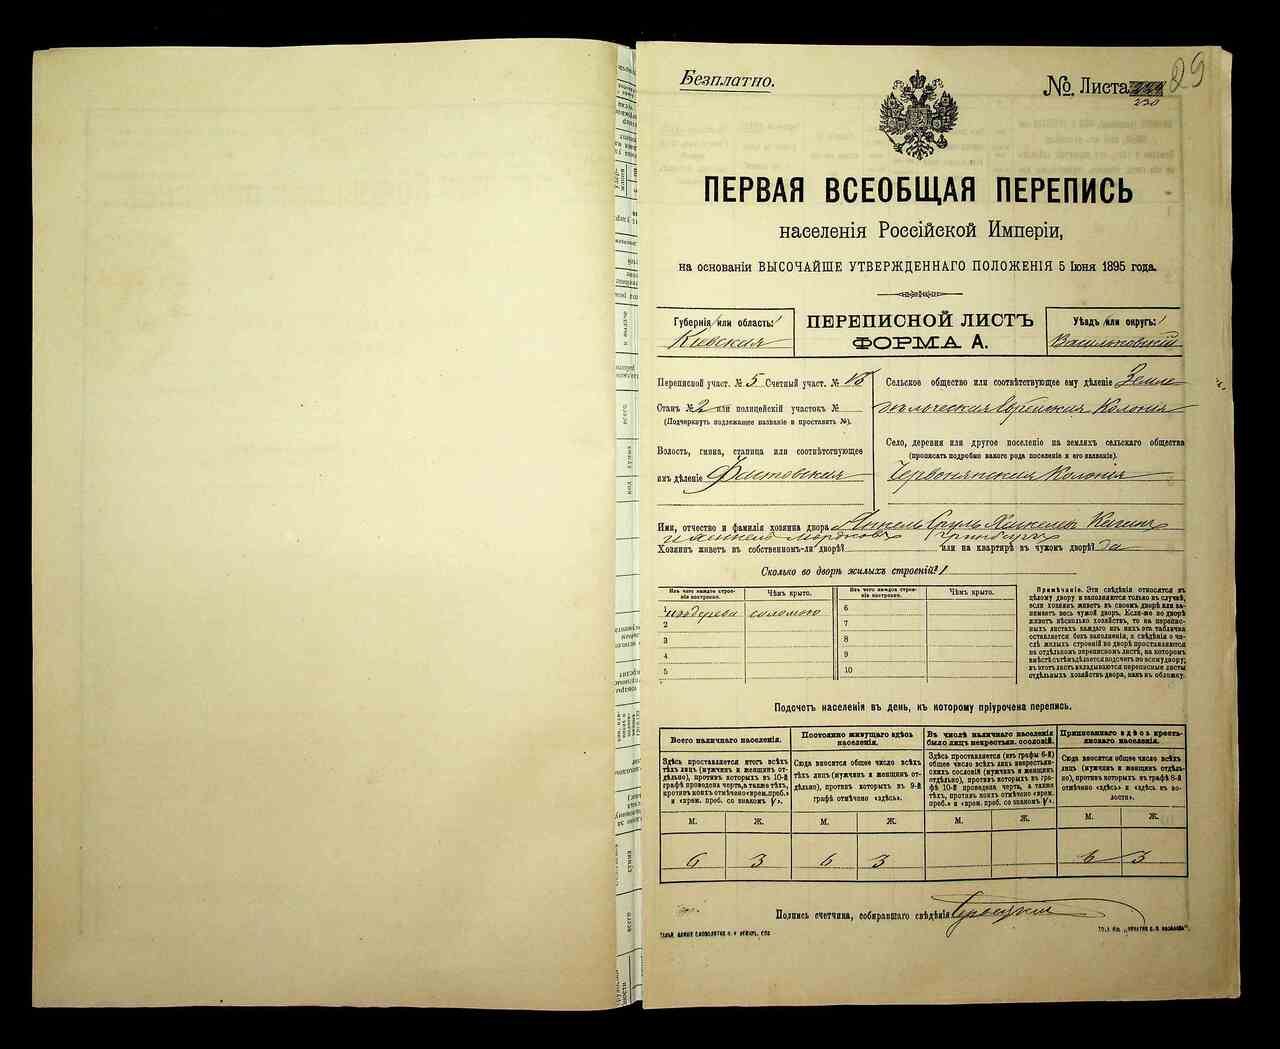 Безплатно.
№. Листа 230
29
ПЕРВАЯ ВСЕОБЩАЯ ПЕРЕПИСЬ
населенія Россійской Имперіи,
на основаніи ВЫСОЧАЙШЕ УТВЕРЖДЕННАГО ПОЛОЖЕНІЯ 5 Іюня 1895 года.
Губернія или область:
Кіевская
ПЕРЕПИСНОЙ ЛИСТЪ
ФОРМА А.
Уѣздъ или округъ:
Васильковскій
Переписной участ. № 5 Счетный участ. №
Станъ № 2 или полицейскій участокъ №
(Подчеркнуть подлежащее названіе и проставить №).
Волость, гмина, станица или соотвѣтствующее
имъ дѣленіе Фастовская
Сельское общество или соотвѣтствующее ему дѣленіе Земле
дѣльческая Еврейская Колонія
Село, деревня или другое поселеніе на земляхъ сельскаго общества
(прописать подробно какого рода поселеніе и его названіе).
Червонянская Колонія
Имя, отчество и фамилія хозяина двора Сруль
Хозяинъ живетъ въ собственномъ-ли дворѣ? или на квартирѣ въ чужомъ дворѣ? да
Сколько во дворѣ жилыхъ строеній? 1
Изъ чего каждое строе-
ніе построено.
Чѣмъ крыто.
Изъ чего каждое строе-
ніе построено.
Чѣмъ крыто.
1 изъ дерева соломою 6
2 7
3 8
4 9
5 10
Примѣчаніе. Эти свѣдѣнія относятся къ
цѣлому двору и заполняются только въ случаѣ,
если хозяинъ живетъ въ своемъ дворѣ или за-
нимаетъ весь чужой дворъ. Если-же во дворѣ
живетъ нѣсколько хозяйствъ, то на перепис-
ныхъ листахъ каждаго изъ нихъ эта табличка
оставляется безъ заполненія, а свѣдѣнія о чи-
слѣ жилыхъ строеній во дворѣ проставляются
на отдѣльномъ переписномъ листѣ, на которомъ
вмѣстѣ съ тѣмъ дѣлается подсчетъ по всему двору;
въ этотъ листъ вкладываются переписные листы
отдѣльныхъ хозяйствъ двора, какъ въ обложку.
Подсчетъ населенія въ день, къ которому пріурочена перепись.
Всего наличнаго населенія.
Постоянно живущаго здѣсь
населенія.
Въ числѣ наличнаго населенія
было лицъ некрестьян. сословій.
Приписаннаго здѣсь кресть-
янскаго населенія.
Здѣсь проставляется итогъ всѣхъ
тѣхъ лицъ (мужчинъ и женщинъ от-
дѣльно), противъ которыхъ въ 10-й
графѣ проведена черта, а также тѣхъ,
противъ коихъ отмѣчено «врем. преб.»
и «врем. преб. со знакомъ V».
Сюда вносится общее число всѣхъ
тѣхъ лицъ (мужчинъ и женщинъ от-
дѣльно), противъ которыхъ въ 9-й
графѣ отмѣчено «здѣсь».
Здѣсь проставляется (изъ графы 6-й)
общее число всѣхъ лицъ некрестьян-
скихъ сословій (мужчинъ и женщинъ
отдѣльно), противъ которыхъ въ гра-
фѣ 10-й проведена черта, а также
тѣхъ, противъ коихъ отмѣчено «врем.
преб.» и «врем. преб. со знакомъ V».
Сюда вносится общее число всѣхъ
лицъ (мужчинъ и женщинъ отдѣль-
но), противъ которыхъ въ графѣ 8-й
отмѣчено «здѣсь» и «здѣсь въ во-
лости».
М. Ж. М. Ж. М. Ж. М. Ж.
6 3 6 3 6 3
Подпись счетчика, собиравшаго свѣдѣнія